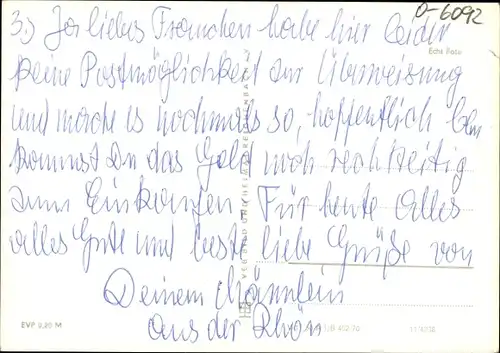 3.) Ja liebes Frauchen habe hier leider
keine Postmöglichkeit zur Überweisung
und mache es nochmals so, hoffentlich be-
kommst Du das Geld noch rechtzeitig
zum Einkaufen. Für heute alles
alles Gute und beste liebe Grüße von
Deinem Männlein
aus der Rhön
0-6092
Echt Foto
EVP 0,20 M